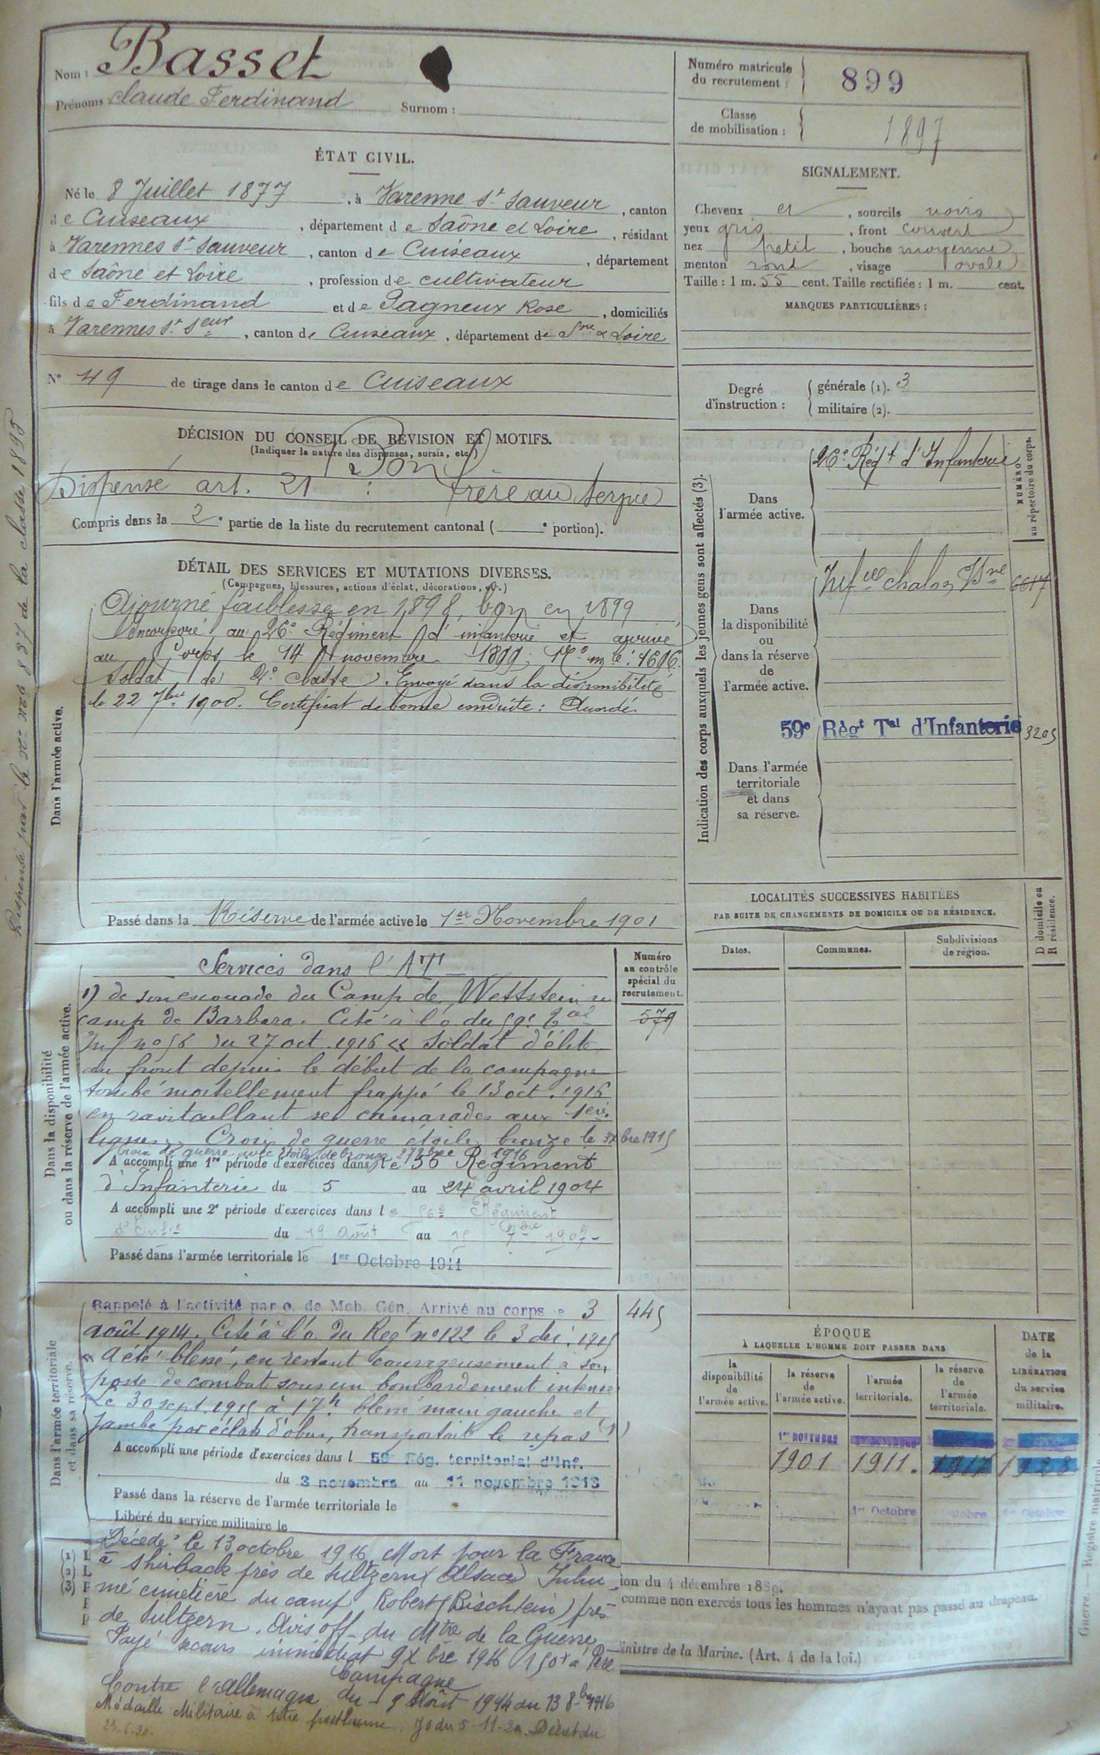 Nom : Basset
Prénoms Claude Ferdinand Surnom :
Numéro matricule
du recrutement : 899
Classe
de mobilisation : 1897
ÉTAT CIVIL.
Né le 8 Juillet 1877, à Varenne St Sauveur, canton
de Cuiseaux, département de Saône et Loire, résidant
à Varennes St Sauveur, canton de Cuiseaux, département
de Saône et Loire, profession de cultivateur
fils de Ferdinand et de Pagneux Rose, domiciliés
à Varennes St Seur, canton de Cuiseaux, département de Sne & Loire
SIGNALEMENT.
Cheveux et, sourcils noirs
yeux gris, front couvert
nez petit, bouche moyenne
menton rond, visage ovale
Taille : 1 m. 55 cent. Taille rectifiée : 1 m. cent.
MARQUES PARTICULIÈRES :
No 49 de tirage dans le canton de Cuiseaux
Degré
d'instruction :
générale (1). 3
militaire (2).
DÉCISION DU CONSEIL DE RÉVISION ET MOTIFS.
(Indiquer la nature des dispenses, sursis, etc.)
Bon
Dispensé art. 21 : frère au service
Compris dans la 2e partie de la liste du recrutement cantonal ( e portion).
DÉTAIL DES SERVICES ET MUTATIONS DIVERSES.
(Campagnes, blessures, actions d'éclat, décorations, etc.)
Ajourné faiblesse en 1898, bon en 1899
Incorporé au 26e Régiment d'infanterie et arrivé
au Corps le 14 novembre 1899; No mle: 4696.
Soldat de 2e classe. Envoyé dans la disponibilité
le 22 7bre 1900. Certificat de bonne conduite: Accordé
Dans l'armée active.
Passé dans la Réserve de l'armée active le 1er Novembre 1901
Dispensé par le No mle 837 de la classe 1895
Indication des corps auxquels les jeunes gens sont affectés (3).
NUMÉRO
au répertoire du corps.
Dans
l'armée active.
26e Régt d'Infanterie
Dans
la disponibilité
ou
dans la réserve
de
l'armée active.
Infie Chalon S/Sne 6617
59e Règt Tal d'Infanterie 3205
Dans l'armée
territoriale
et dans
sa réserve.
LOCALITÉS SUCCESSIVES HABITÉES
PAR SUITE DE CHANGEMENTS DE DOMICILE OU DE RÉSIDENCE.
D domicile ou
R résidence.
Dates.
Communes.
Subdivisions
de région.
Dans la disponibilité
ou dans la réserve de l'armée active.
Numéro
au contrôle
spécial du
recrutement.
579
Services dans l'AT
1) de son escouade du Camp de Wettstein au
camp de Barbara. Cité à l'o du 59e tal
Inf no 56 du 27 oct. 1916 « Soldat d'élite
au front depuis le début de la campagne
tombé mortellement frappé le 13 oct. 1916
en ravitaillant ses camarades aux 1ères
lignes. Croix de guerre étoile bronze le 3 Xbre 1915
Croix de guerre avec étoile de bronze 27 8bre 1916
A accompli une 1re période d'exercices dans le 56 Régiment
d'Infanterie du 5 au 24 avril 1904
A accompli une 2e période d'exercices dans le 56e Régiment
d'Infie du 19 Août au 15 7bre 1907
Passé dans l'armée territoriale le 1er Octobre 1911
Dans l'armée territoriale
et dans sa réserve.
Rappelé à l'activité par o. de Mob. Gén. Arrivé au corps le 3 445
août 1914. Cité à l'o du Régt no 122 le 3 déc. 1915
« A été blessé, en restant courageusement à son
poste de combat sous un bombardement intense
Le 30 sept. 1915 à 17h blessé main gauche et
jambe par éclat d'obus, transportait le repas (1)
A accompli une période d'exercices dans l 59 Rég. territorial d'Inf.
du 3 novembre au 11 novembre 1913
Passé dans la réserve de l'armée territoriale le
Libéré du service militaire le
ÉPOQUE
À LAQUELLE L'HOMME DOIT PASSER DANS
DATE
de la
LIBÉRATION
du service
militaire.
la
disponibilité
de
l'armée active.
la
réserve
de
l'armée active.
l'armée
territoriale.
la réserve
de
l'armée
territoriale.
1er NOVEMBRE
1901 1911. 1917
1er Octobre
Décédé le 13 octobre 1916 Mort pour la France
à Shirback près de Sultzern Alsace Inhu
mé cimetière du camp Robert (Bischtein) près
de Sultzern. Avis off. du Mtre de la Guerre
Payé secours immédiat 9 Xbre 1916 150f à Père
Campagne
Contre l'allemagne du 3 Août 1914 au 13 8bre 1916
Médaille Militaire à titre posthume. Jo du 5-11-20. Décret du
ion du 4 décembre 1889.
comme non exercés tous les hommes n'ayant pas passé au drapeau.
inistre de la Marine. (Art. 4 de la loi.)
Guerre. — Registre matricule